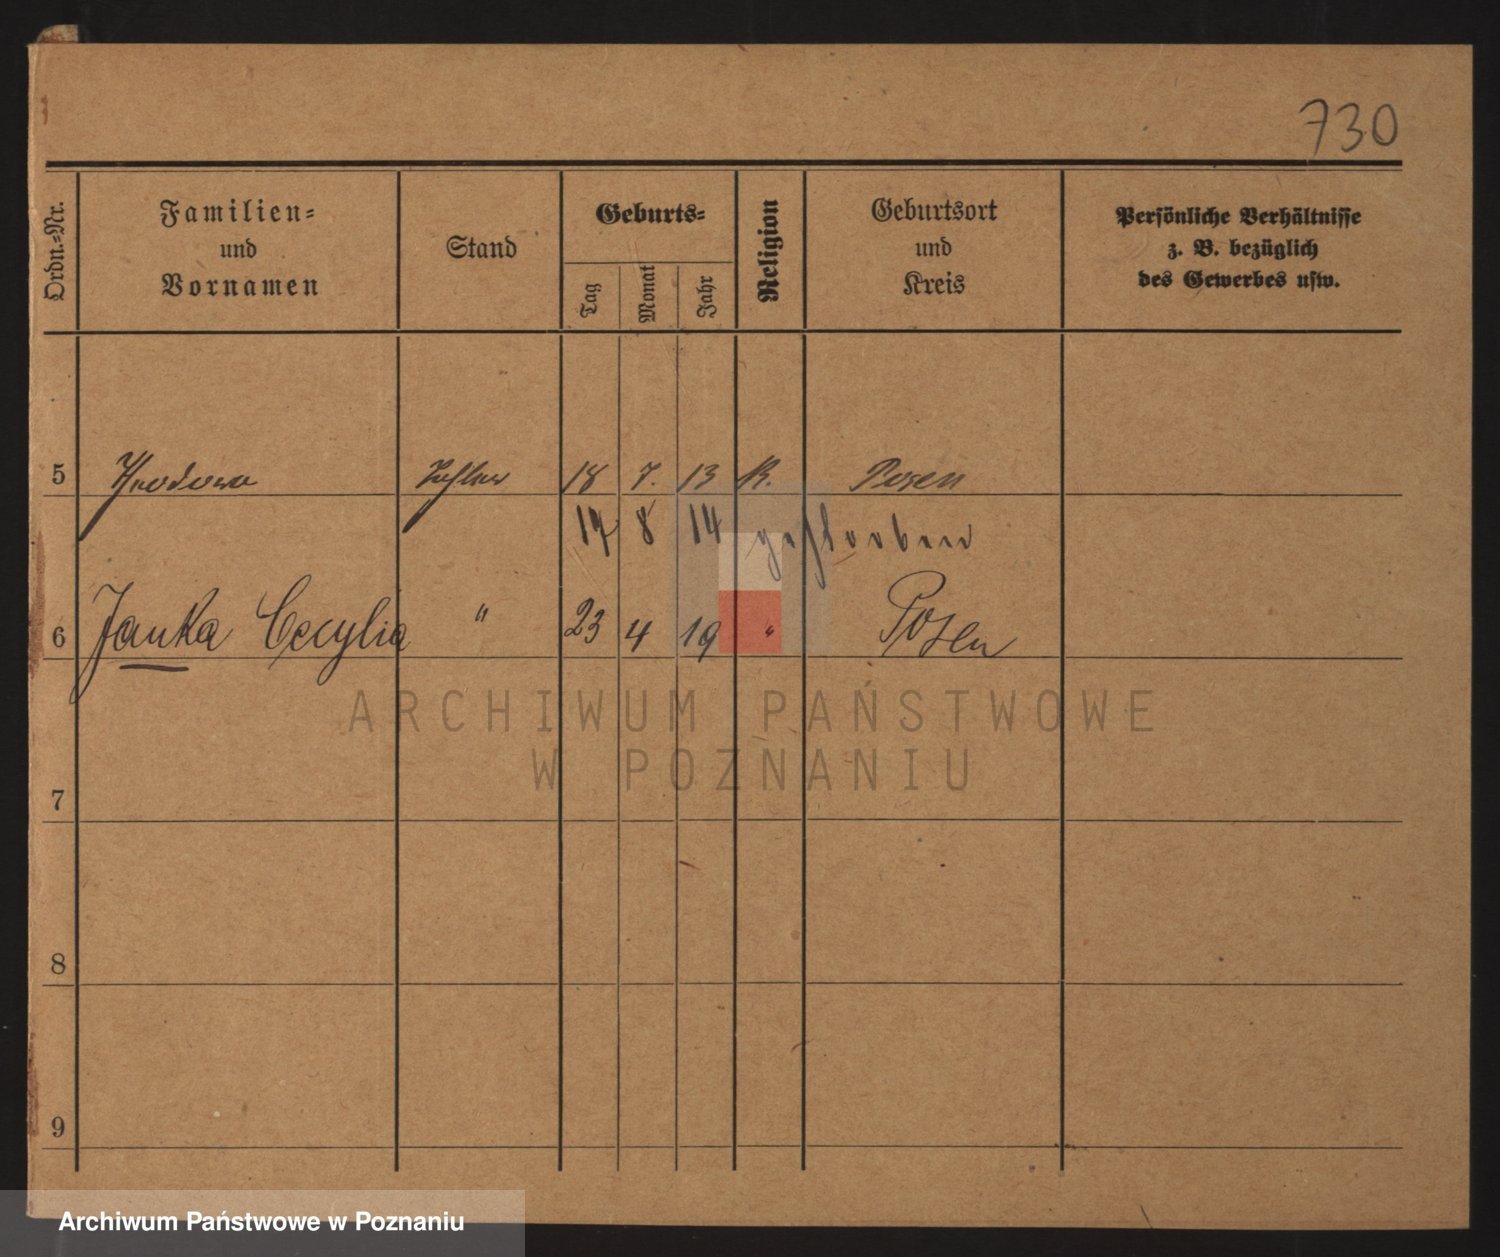 730
Ordn.=Nr.
Familien=
und
Vornamen
Stand
Geburts=
Tag
Monat
Jahr
Religion
Geburtsort
und
Kreis
Persönliche Verhältnisse
z. B. bezüglich
des Gewerbes usw.
5 18 7. 13 K. Posen
17 8 14 gestorben
6 Janka Cecylia " 23 4 19 " Posen
ARCHIWUM PAŃSTWOWE
W POZNANIU
7
8
9
Archiwum Państwowe w Poznaniu